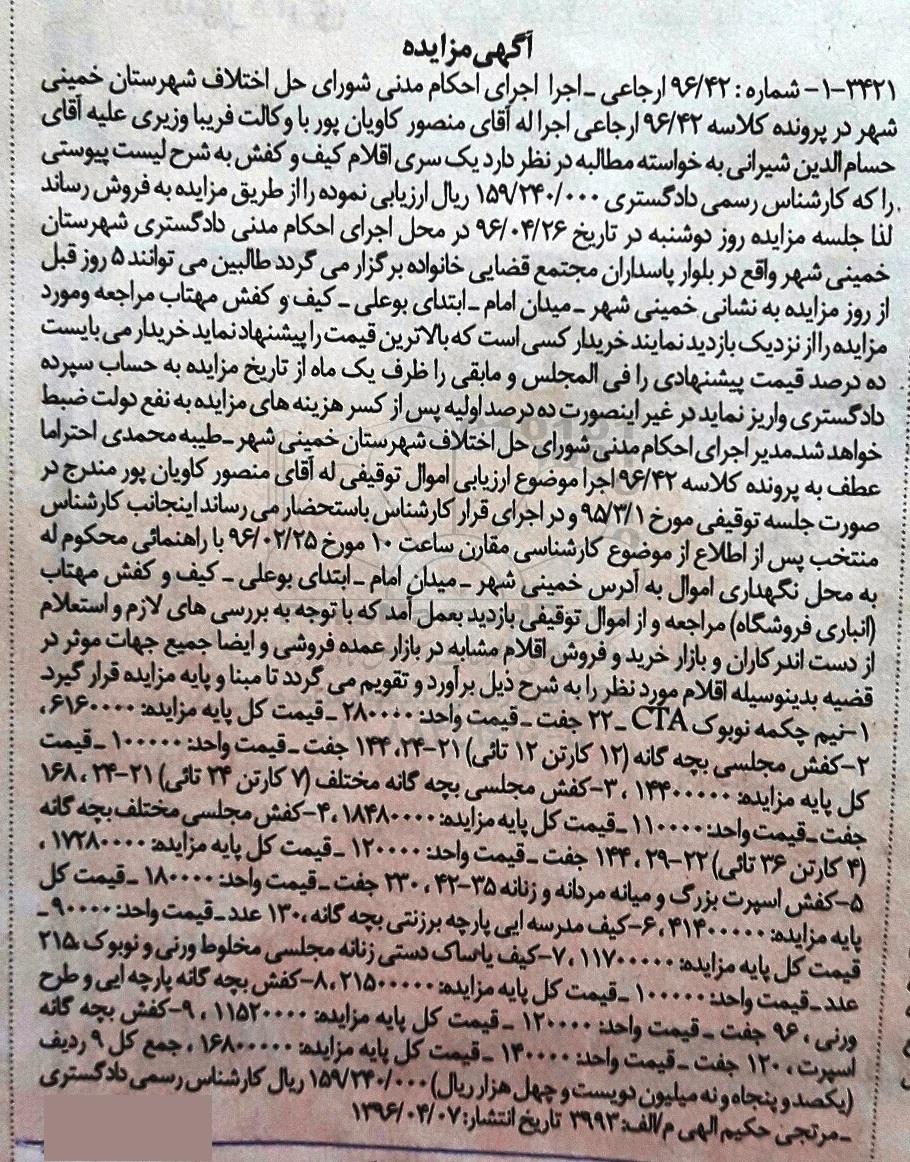 آگهی مزایده
۳۴۲۱-۱- شماره : ۹۶/۴۲ ارجاعی ـ اجرا اجرای احکام مدنی شورای حل اختلاف شهرستان خمینی
شهر در پرونده کلاسه ۹۶/۴۲ ارجاعی اجرا له آقای منصور کاویان پور با وکالت فریبا وزیری علیه آقای
حسام الدین شیرانی به خواسته مطالبه در نظر دارد یک سری اقلام کیف و کفش به شرح لیست پیوستی
را که کارشناس رسمی دادگستری ۱۵۹/۲۴۰/۰۰۰ ریال ارزیابی نموده را از طریق مزایده به فروش رساند
لذا جلسه مزایده روز دوشنبه در تاریخ ۹۶/۰۴/۲۶ در محل اجرای احکام مدنی دادگستری شهرستان
خمینی شهر واقع در بلوار پاسداران مجتمع قضایی خانواده برگزار می گردد طالبین می توانند ۵ روز قبل
از روز مزایده به نشانی خمینی شهر ـ میدان امام ـ ابتدای بوعلی ـ کیف و کفش مهتاب مراجعه ومورد
مزایده را از نزدیک بازدید نمایند خریدار کسی است که بالاترین قیمت را پیشنهاد نماید خریدار می بایست
ده درصد قیمت پیشنهادی را فی المجلس و مابقی را ظرف یک ماه از تاریخ مزایده به حساب سپرده
دادگستری واریز نماید در غیر اینصورت ده درصد اولیه پس از کسر هزینه های مزایده به نفع دولت ضبط
خواهد شد.مدیر اجرای احکام مدنی شورای حل اختلاف شهرستان خمینی شهر ـ طیبه محمدی احتراما
عطف به پرونده کلاسه ۹۶/۴۲ اجرا موضوع ارزیابی اموال توقیفی له آقای منصور کاویان پور مندرج در
صورت جلسه توقیفی مورخ ۹۵/۳/۱ و در اجرای قرار کارشناس باستحضار می رساند اینجانب کارشناس
منتخب پس از اطلاع از موضوع کارشناسی مقارن ساعت ۱۰ مورخ ۹۶/۰۲/۲۵ با راهنمائی محکوم له
به محل نگهداری اموال به آدرس خمینی شهر ـ میدان امام ـ ابتدای بوعلی ـ کیف و کفش مهتاب
(انباری فروشگاه) مراجعه و از اموال توقیفی بازدید بعمل آمد که با توجه به بررسی های لازم و استعلام
از دست اندرکاران و بازار خرید و فروش اقلام مشابه در بازار عمده فروشی و ایضا جمیع جهات موثر در
قضیه بدینوسیله اقلام مورد نظر را به شرح ذیل برآورد و تقویم می گردد تا مبنا و پایه مزایده قرار گیرد.
۱-نیم چکمه نوبوک CTA ـ ۲۲ جفت ـ قیمت واحد: ۲۸۰۰۰۰ ـ قیمت کل پایه مزایده: ۶۱۶۰۰۰۰ ،
۲-کفش مجلسی بچه گانه (۱۲ کارتن ۱۲ تائی) ۲۱-۲۴، ۱۴۴ جفت ـ قیمت واحد: ۱۰۰۰۰۰ ـ قیمت
کل پایه مزایده: ۱۴۴۰۰۰۰۰ ، ۳-کفش مجلسی بچه گانه مختلف (۷ کارتن ۲۴ تائی) ۲۱-۲۴ ، ۱۶۸
جفت ـ قیمت واحد: ۱۱۰۰۰۰ ـ قیمت کل پایه مزایده: ۱۸۴۸۰۰۰۰ ، ۴-کفش مجلسی مختلف بچه گانه
(۴ کارتن ۳۶ تائی) ۲۲-۲۹ ، ۱۴۴ جفت ـ قیمت واحد: ۱۲۰۰۰۰ ـ قیمت کل پایه مزایده: ۱۷۲۸۰۰۰۰ ،
۵-کفش اسپرت بزرگ و میانه مردانه و زنانه ۳۵-۴۲ ، ۲۳۰ جفت ـ قیمت واحد: ۱۸۰۰۰۰ ـ قیمت کل
پایه مزایده: ۴۱۴۰۰۰۰۰ ، ۶-کیف مدرسه ایی پارچه برزنتی بچه گانه ، ۱۳۰ عدد ـ قیمت واحد: ۹۰۰۰۰ ـ
قیمت کل پایه مزایده: ۱۱۷۰۰۰۰۰ ، ۷-کیف یا ساک دستی زنانه مجلسی مخلوط ورنی و نوبوک ، ۲۱۵
عدد ـ قیمت واحد: ۱۰۰۰۰۰ ـ قیمت کل پایه مزایده: ۲۱۵۰۰۰۰۰ ، ۸-کفش بچه گانه پارچه ایی و طرح
ورنی ، ۹۶ جفت ـ قیمت واحد: ۱۲۰۰۰۰ ـ قیمت کل پایه مزایده: ۱۱۵۲۰۰۰۰ ، ۹-کفش بچه گانه
اسپرت ، ۱۲۰ جفت ـ قیمت واحد: ۱۴۰۰۰۰ ـ قیمت کل پایه مزایده: ۱۶۸۰۰۰۰۰ ، جمع کل ۹ ردیف
(یکصد و پنجاه و نه میلیون دویست و چهل هزار ریال) ۱۵۹/۲۴۰/۰۰۰ ریال کارشناس رسمی دادگستری
ـ مرتجی حکیم الهی م/الف: ۳۹۹۳ تاریخ انتشار: ۱۳۹۶/۰۴/۰۷